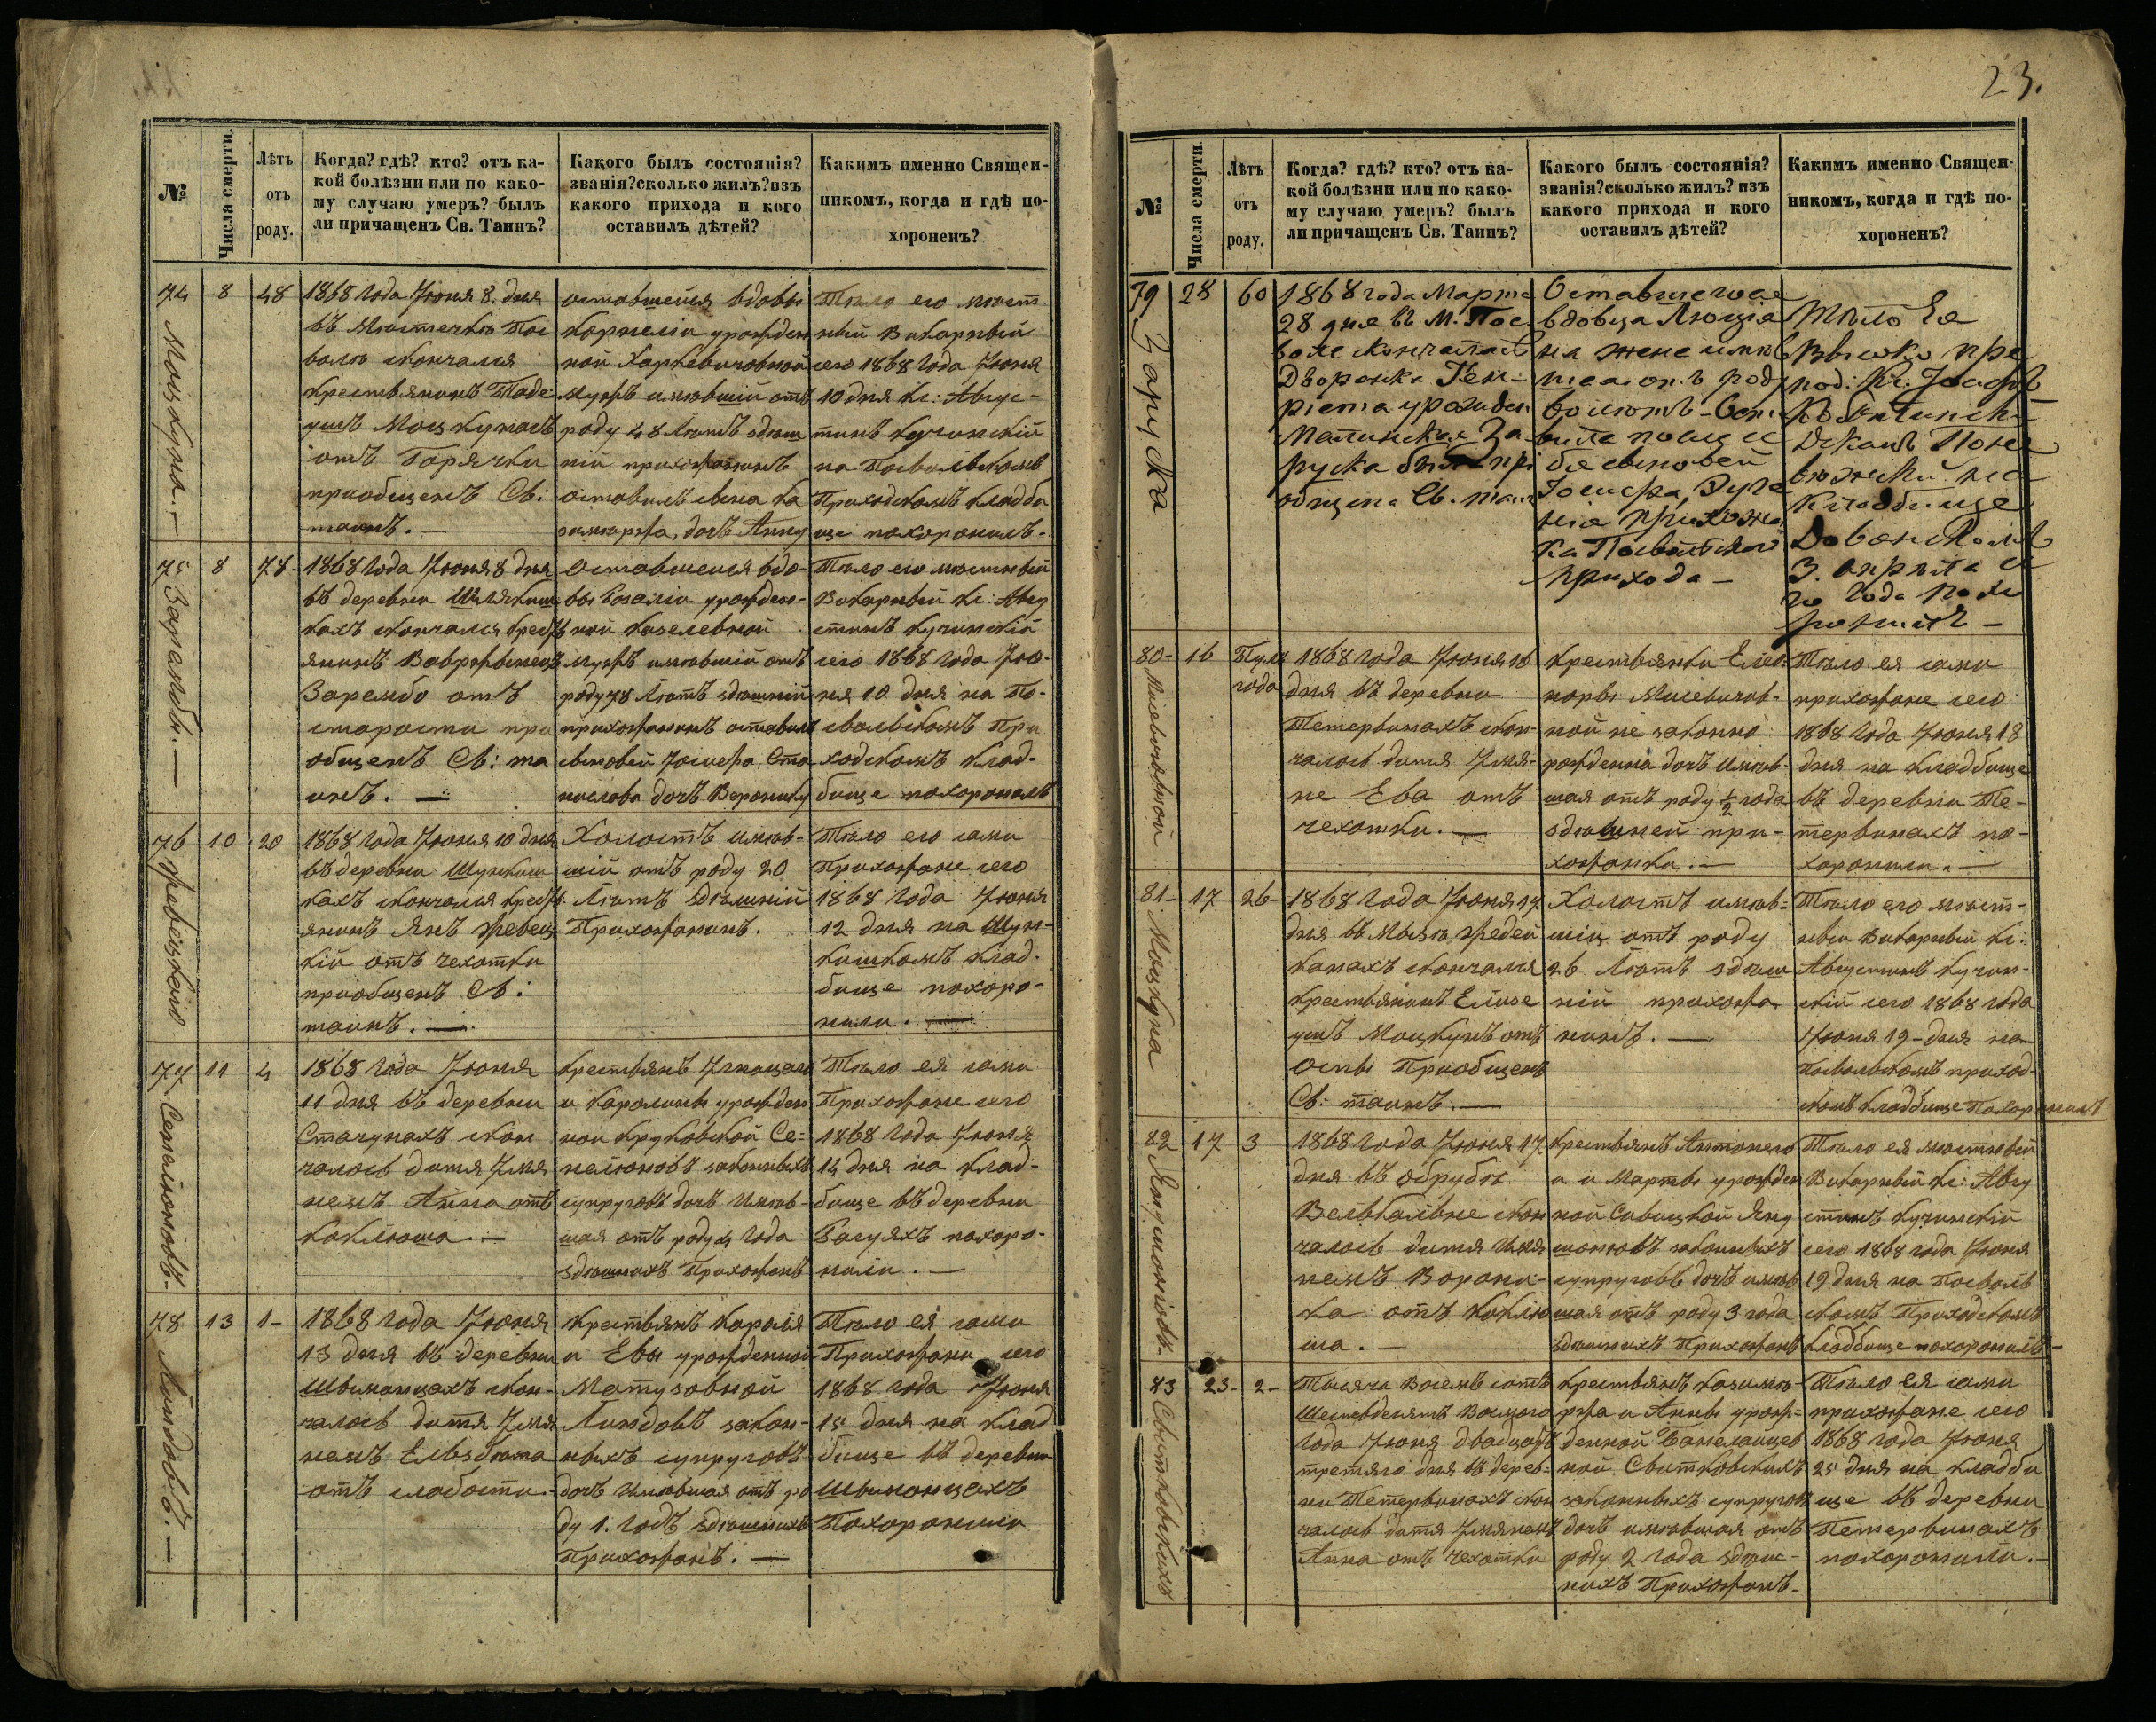 23.
№
Числа смерти.
Лѣтъ
отъ
роду.
Когда? гдѣ? кто? отъ ка-
кой болѣзни или по како-
му случаю умеръ? былъ
ли причащенъ Св. Таинъ?
Какого былъ состоянія?
званія? сколько жилъ? изъ
какого прихода и кого
оставилъ дѣтей?
Какимъ именно Священ-
никомъ, когда и гдѣ по-
хороненъ?
74
Моцкуна. —
8
48
1868 года Июня 8. дня
въ Мѣстечкѣ Пос
волѣ скончался
крестьянинъ Таде
ушъ Моцкунасъ
отъ Горячки
приобщенъ Св:
таинъ. —
оставшейся вдовы
Корнеліи урожден
ной
мужъ имѣвшій отъ
роду 48 лѣтъ здѣш
ній прихожанинъ
оставилъ сына Ка
зимѣржа, дочь Анну
Тѣло его мѣст
ный Викарный
сего 1868 года Июня
10 дня Кс: Авгус-
тинъ Кучинскій
на Посвольскомъ
Приходскомъ кладби
ще похоронилъ. -
75
Зарембы. —
8
78
1868 года Июня 8 дня
въ деревни
кахъ скончался Кресть
янинъ Вавржинецъ
Зарембо отъ
старости при
общенъ Св: та
инъ. —
Оставшейся вдо-
вы Розаліи урожден-
ной
мужъ имѣвшій отъ
роду 78 лѣтъ здѣшній
прихожанинъ оставилъ
сыновей Іосифа, Ста
нислова дочь Веронику
Тѣло его мѣстный
Викарный Кс: Авгу
стинъ Кучинскій
сего 1868 года Ию-
ня 10 дня на По-
свольскомъ При
ходскомъ Клад-
бище похоронилъ
76
10
20
1868 года Июня 10 дня
въ деревни
кахъ скончался Кресть
янинъ Янъ
кій отъ чехотки
приобщенъ Св:
таинъ. —
Холостъ имѣв-
шій отъ роду 20
Лѣтъ здѣшній
Прихожанинъ.
Тѣло его сами
Прихожане сего
1868 года Июня
12 дня на Шун-
кишкомъ клад-
бище похоро-
нили. —
77
11
4
1868 года Июня
11 дня въ деревни
Стачунахъ скон
чалось дитя Имя
немъ Анна отъ
коклюша. —
крестьянъ Игнацаго
и Каролины урожден
ной Круковской Се-
законныхъ
супруговъ дочь имѣв-
шая отъ роду 4 года
здѣшнихъ Прихожанъ
Тѣло ея сами
Прихожане сего
1868 года Июня
14 дня на клад-
бище въ деревни
похоро-
нили. —
78
Линдовъ. —
13
1-
1868 года Июня
13 дня въ деревни
Швиманцахъ скон-
чалось дитя Имя
немъ Елъзбѣта
отъ слабости. -
крестьянъ Кароля
и Евы урожденной
Матузовной
Линдовъ закон-
ныхъ супруговъ
дочь имѣвшая отъ ро
ду 1. годъ здѣшнихъ
Прихожанъ. —
Тѣло ея сами
Прихожани сего
1868 года Июня
15 дня на клад
бище въ деревни
Швиманцахъ
Похоронили
№
Числа смерти.
Лѣтъ
отъ
роду.
Когда? гдѣ? кто? отъ ка-
кой болѣзни или по како-
му случаю умеръ? былъ
ли причащенъ Св. Таинъ?
Какого былъ состоянія?
званія? сколько жилъ? изъ
какого прихода и кого
оставилъ дѣтей?
Какимъ именно Священ-
никомъ, когда и гдѣ по-
хороненъ?
79
Заруска
28
60
1868 года Марта
28 дня въ М. Пос
воле скончалась
Дворянка Ген-
ріета урожден
Малинская За
руска была прі
общена Св. таин
Оставшегося
вдовца
на жене имѣв
шая отъ роду
60 лѣтъ - Оста
вила
бѣ сыновей
Іосифа,
прихожан
ка Посвольскаго
прихода —
Тѣло Ея
Кс. Іосифъ
Деканъ Поне
вѣжскій на
кладбище
3. Апрѣля се
го года похо
ронилъ —
80-
16
Полъ
года
1868 года Июня 16
дня въ деревни
Тетервинахъ скон-
чалось дитя Имя-
не Ева отъ
чехотки. —
крестьянки Елео-
норы Мисевичов-
ной не законно
рожденна дочь имѣв-
шая отъ роду ½ года
здѣшней при-
хожанка. —
Тѣло ея сами
прихожане сего
1868 года Июня 18
дня на кладбище
въ деревни Те-
тервинахъ по-
хоронили. —
81-
Моцкуна
17
26-
1868 года Июня 17
дня въ
канахъ скончался
крестьянинъ
ушъ Моцкунъ отъ
оспы Приобщенъ
Св: таинъ. —
Холостъ имѣв-
шій отъ роду
26 Лѣтъ здѣш
ній прихожа
нинъ. —
Тѣло его мѣст-
ны Викарный Кс:
Августинъ Кучин-
скій сего 1868 года
Июня 19 - дня на
Посвольскомъ приход-
скомъ кладбище Похоронилъ
82
17
3
1868 года Июня 17
дня въ обрубѣ
скон
чалось дитя имя
немъ Верони-
ка отъ коклю
ша. —
крестьянъ Антонего
и Марты урожден
ной Савицкой Яну
законныхъ
супруговъ дочь имѣв
шая отъ роду 3 года
здѣшнихъ Прихожанъ
Тѣло ея мѣстный
Викарный Кс: Авгу
стинъ Кучинскій
сего 1868 года Июня
19 дня на Посволь
скомъ Приходскомъ
кладбище похоронилъ —
43
Свитковскихъ
23-
2-
Тысяча Восемь сотъ
Шестьдесятъ Восмого
года Июня двадцать
третяго дня въ дерев-
ни Тетервинахъ скон
чалось дитя Имянемъ
Анна отъ чехотки
крестьянъ Казимѣ-
ржа и Анны урож-
денной
ной Свитковскихъ
законныхъ супруговъ
дочь имѣвшая отъ
роду 2 года здѣш-
нихъ Прихожанъ. -
Тѣло ея сами
прихожане сего
1868 года Июня
25 дня на кладби
ще въ деревни
Тетервинахъ
похоронили. —